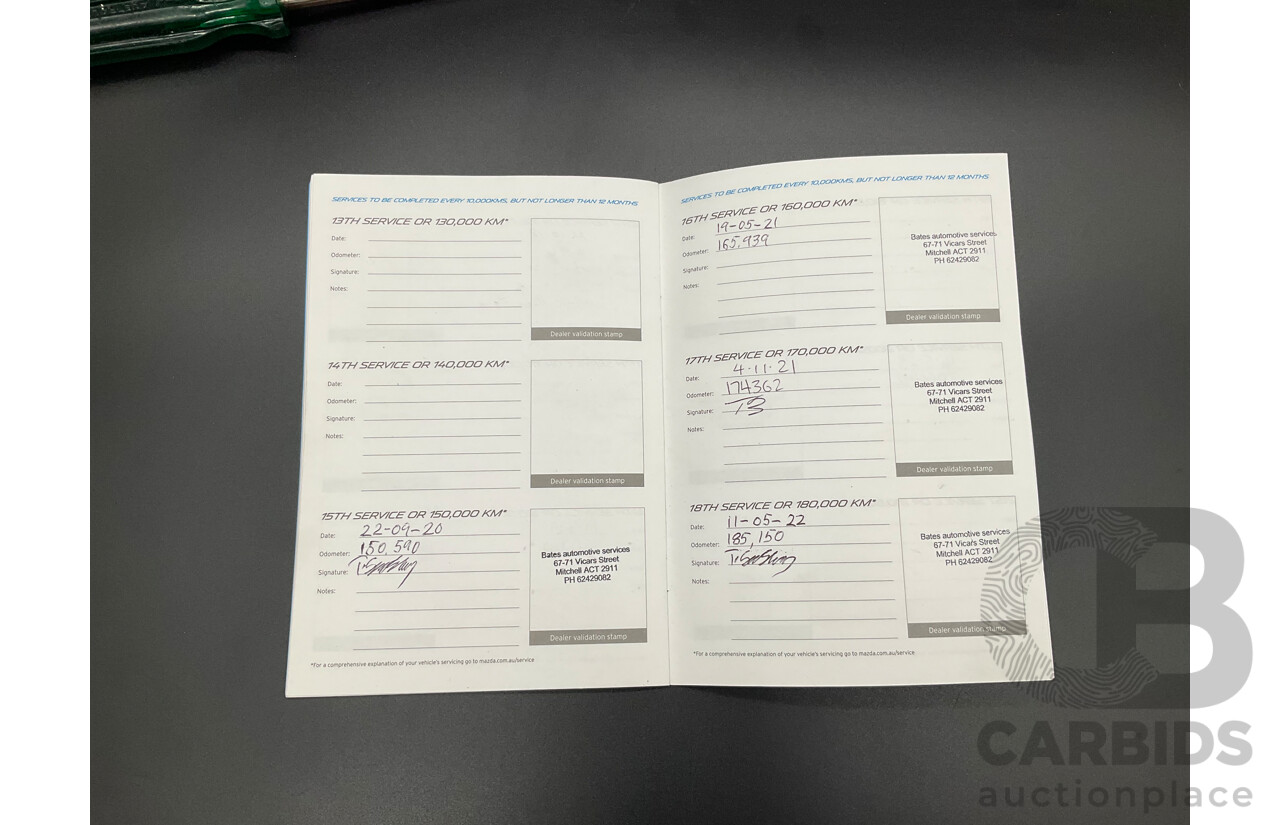 SERVICES TO BE COMPLETED EVERY 10,000KMS, BUT NOT LONGER THAN 12 MONTHS
13TH SERVICE OR 130,000 KM*
Date:
Odometer:
Signature:
Notes:
Dealer validation stamp
14TH SERVICE OR 140,000 KM*
Date:
Odometer:
Signature:
Notes:
Dealer validation stamp
15TH SERVICE OR 150,000 KM*
Date: 22-09-20
Odometer: 150,590
Signature:
Notes:
Bates automotive services
67-71 Vicars Street
Mitchell ACT 2911
PH 62429082
Dealer validation stamp
*For a comprehensive explanation of your vehicle's servicing go to mazda.com.au/service
SERVICES TO BE COMPLETED EVERY 10,000KMS, BUT NOT LONGER THAN 12 MONTHS
16TH SERVICE OR 160,000 KM*
Date: 19-05-21
Odometer: 165,939
Signature:
Notes:
Bates automotive services
67-71 Vicars Street
Mitchell ACT 2911
PH 62429082
Dealer validation stamp
17TH SERVICE OR 170,000 KM*
Date: 4.11.21
Odometer: 174362
Signature:
Notes:
Bates automotive services
67-71 Vicars Street
Mitchell ACT 2911
PH 62429082
Dealer validation stamp
18TH SERVICE OR 180,000 KM*
Date: 11-05-22
Odometer: 185,150
Signature:
Notes:
Bates automotive services
67-71 Vicars Street
Mitchell ACT 2911
PH 62429082
Dealer validation stamp
*For a comprehensive explanation of your vehicle's servicing go to mazda.com.au/service
CB
CARBIDS
auctionplace